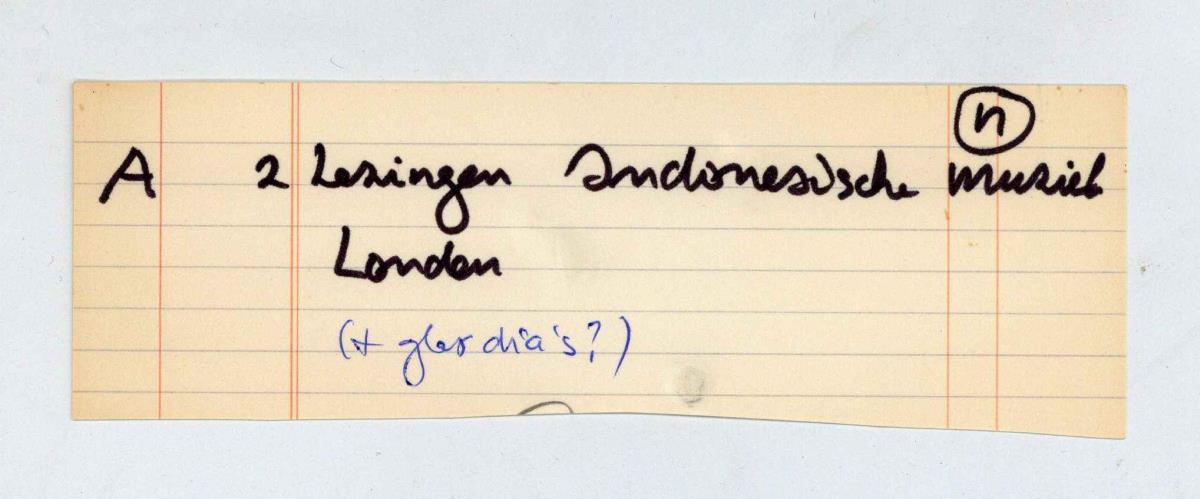 n
A 2 Lezingen Indonesische muziek
Londen
(+ glasdia's?)